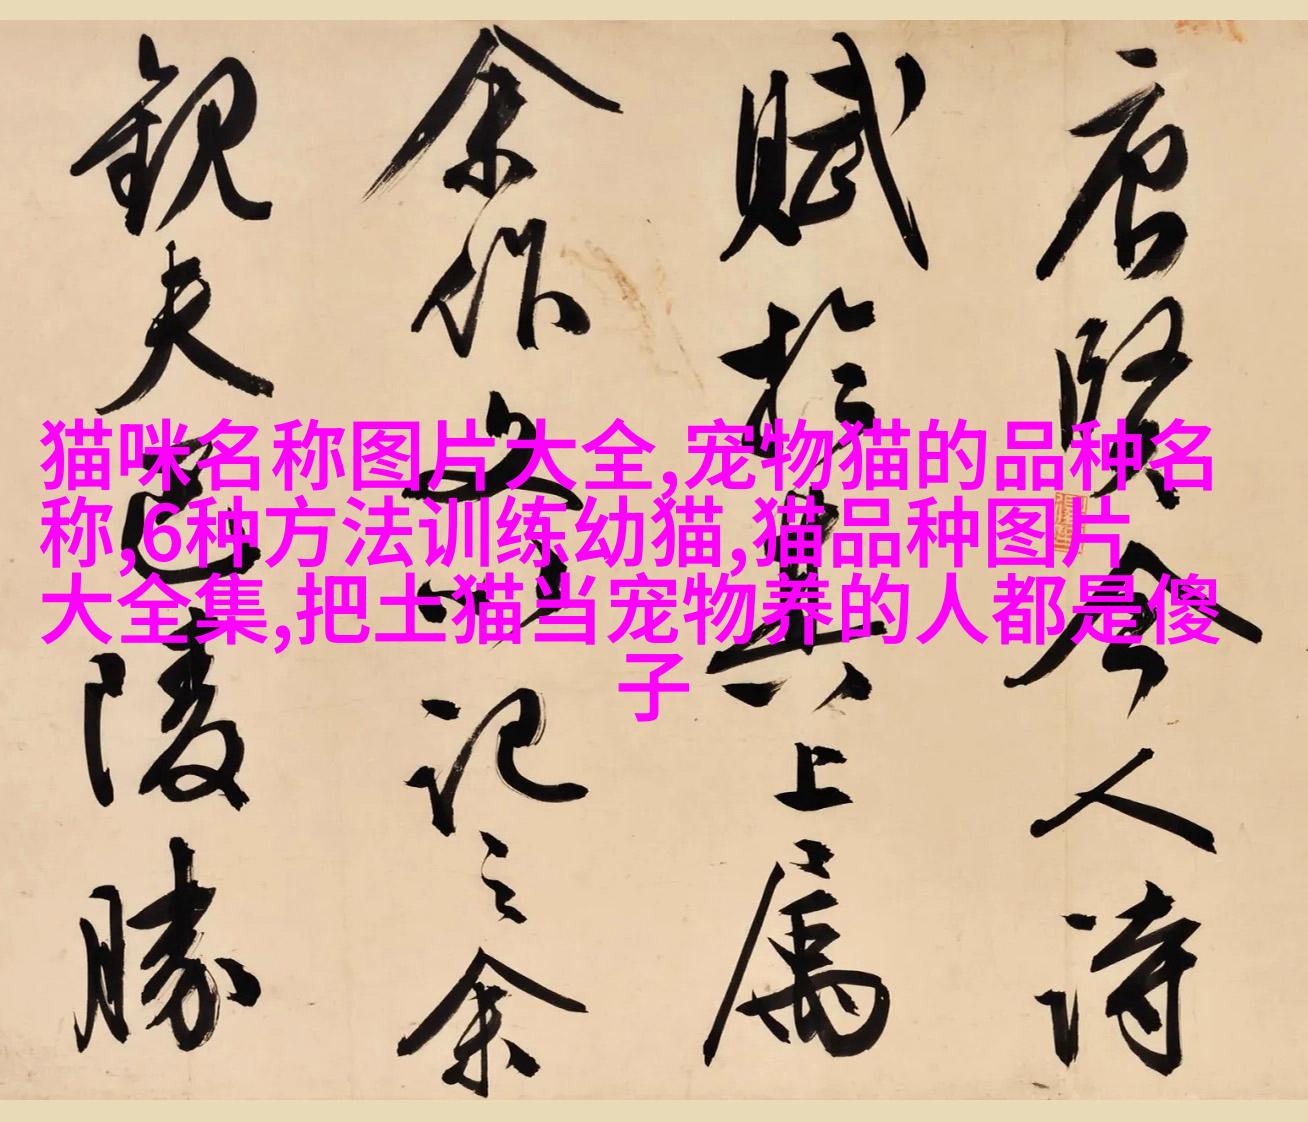 唐贤今人诗
赋于其上属
余作文以记之余
观夫巴陵胜
猫咪名称图片大全,宠物猫的品种名
称,6种方法训练幼猫,猫品种图片
大全集,把土猫当宠物养的人都是傻
子